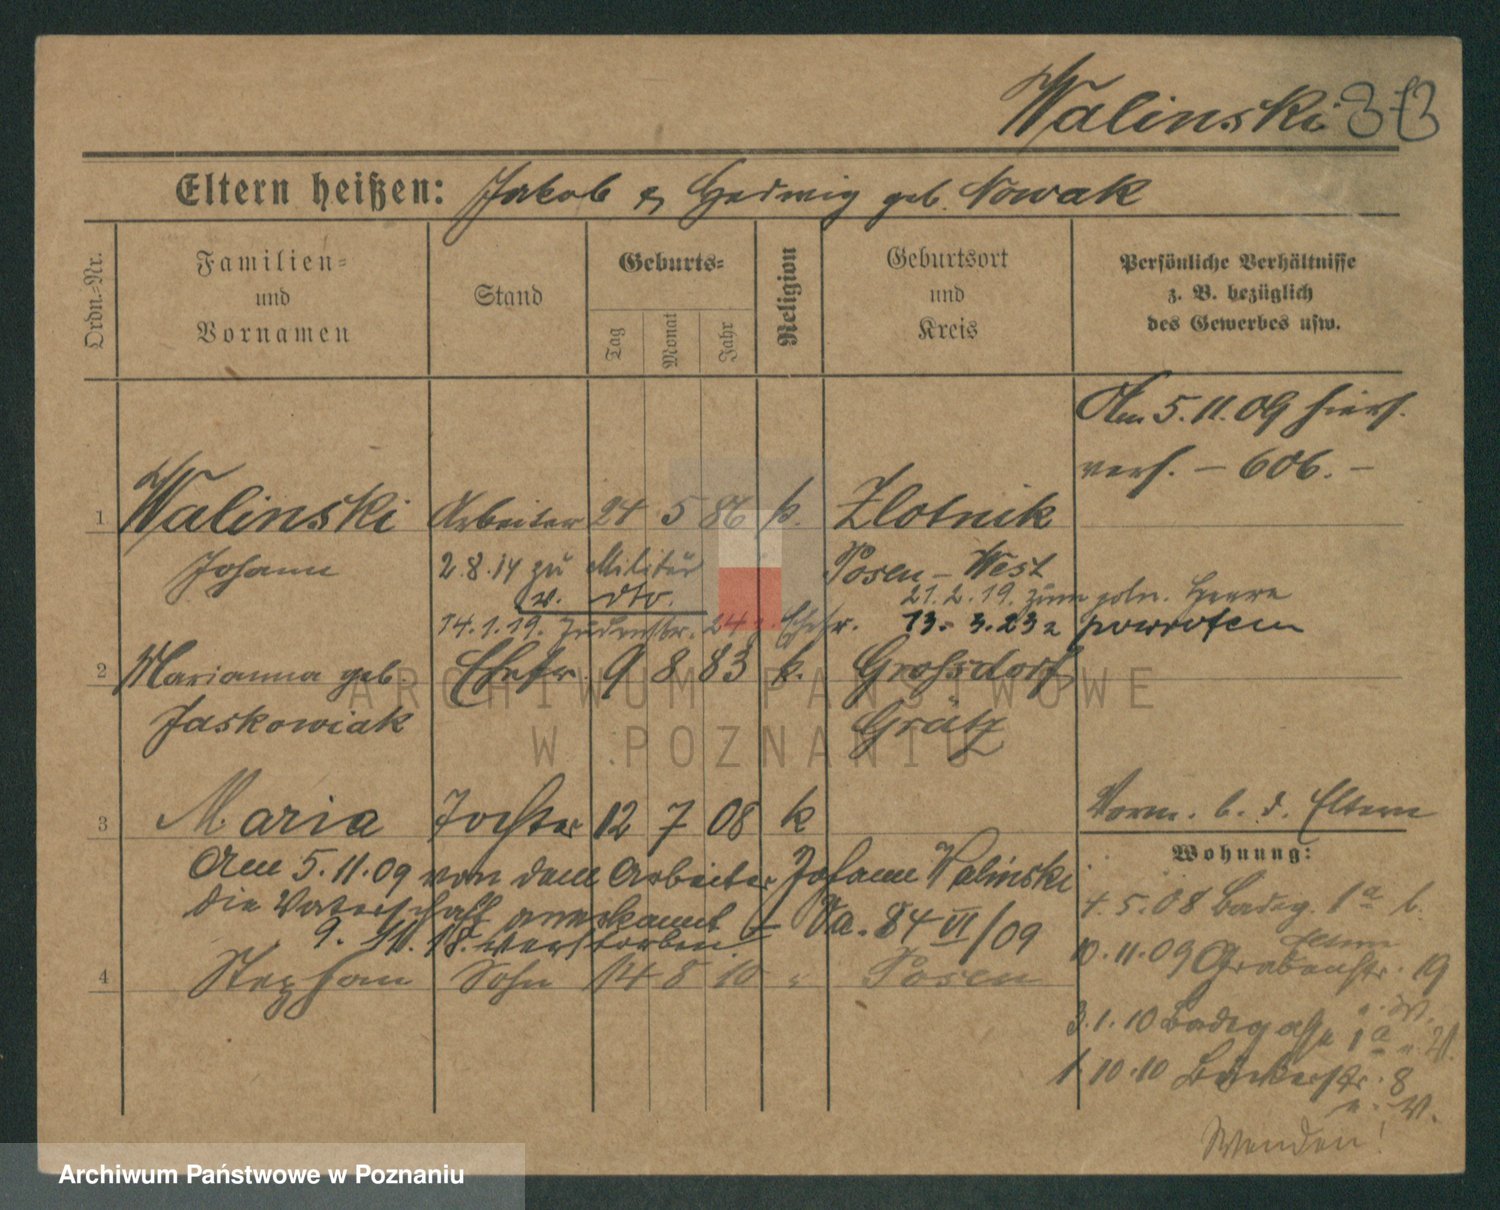 Walinski
Eltern heißen: Jakob & Hedwig geb. Nowak
Ordn.-Nr.
Familien-
und
Vornamen
Stand
Geburts-
Tag
Monat
Jahr
Religion
Geburtsort
und
Kreis
Persönliche Verhältnisse
z. B. bezüglich
des Gewerbes usw.
Am 5.11.09 hier
verh. – 606. –
1 Walinski Arbeiter 24 5 86 k. Zlotnik
Johann 2.8.14 zu Militär Posen – West
v. dto. 21.2.19. zum poln. Heere
14.1.19. 24 z. Ehefr. 13.3.23 z powrotem
2 Marianna geb. Ehefr. 9 8 83 k. Grossdorf
Jaskowiak Grätz
3 Maria Tochter 12 7 08 k
Vorm. b. d. Eltern
Wohnung:
Am 5.11.09 von dem Arbeiter Johann Walinski
die Vaterschaft anerkannt – Va. 84 VI/09
9. 18. verstorben
4 Stephan Sohn 14 8 10 " Posen
5.08 Badeg. 1a b.
Eltern
10.11.09 Grabenstr. 19
u. W.
3.1.10 Badegasse 1a u. W.
1.10.10 Bäckerstr. 8
u. W.
Wenden!
ARCHIWUM PAŃSTWOWE
W POZNANIU
Archiwum Państwowe w Poznaniu